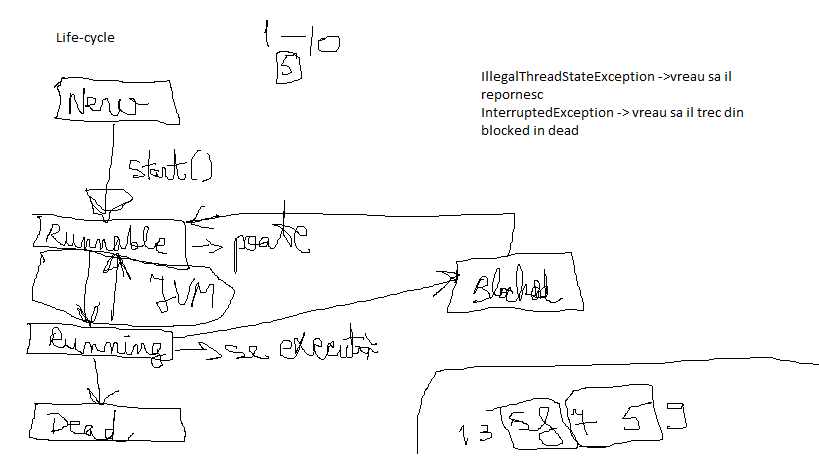 Life-cycle
1 - 10
5
IllegalThreadStateException ->vreau sa il
repornesc
InterruptedException -> vreau sa il trec din
blocked in dead
New
start()
Runnable
poate
JVM
Blocked
Running
se execută
Dead
1 3 58 7 5 9